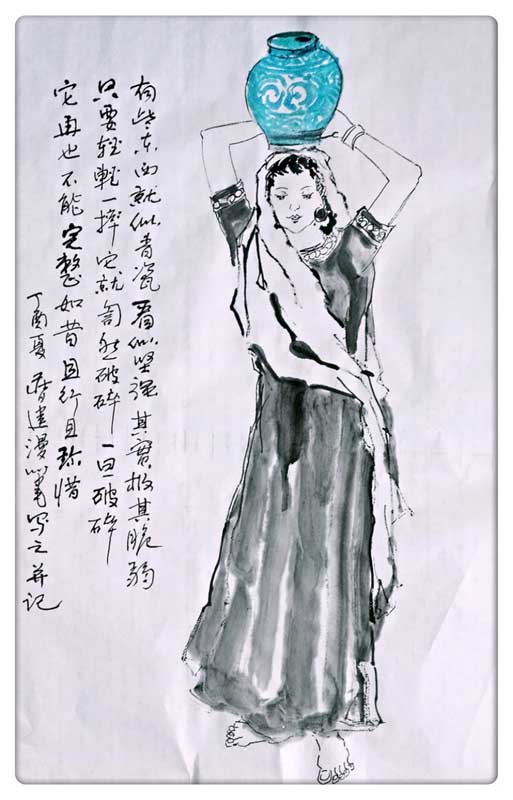 有些东西就似青瓷看似坚强其实极其脆弱
只要轻轻一摔它就訇然破碎一旦破碎
它再也不能完整如昔且行且珍惜
丁酉夏 建漫笔写之并记